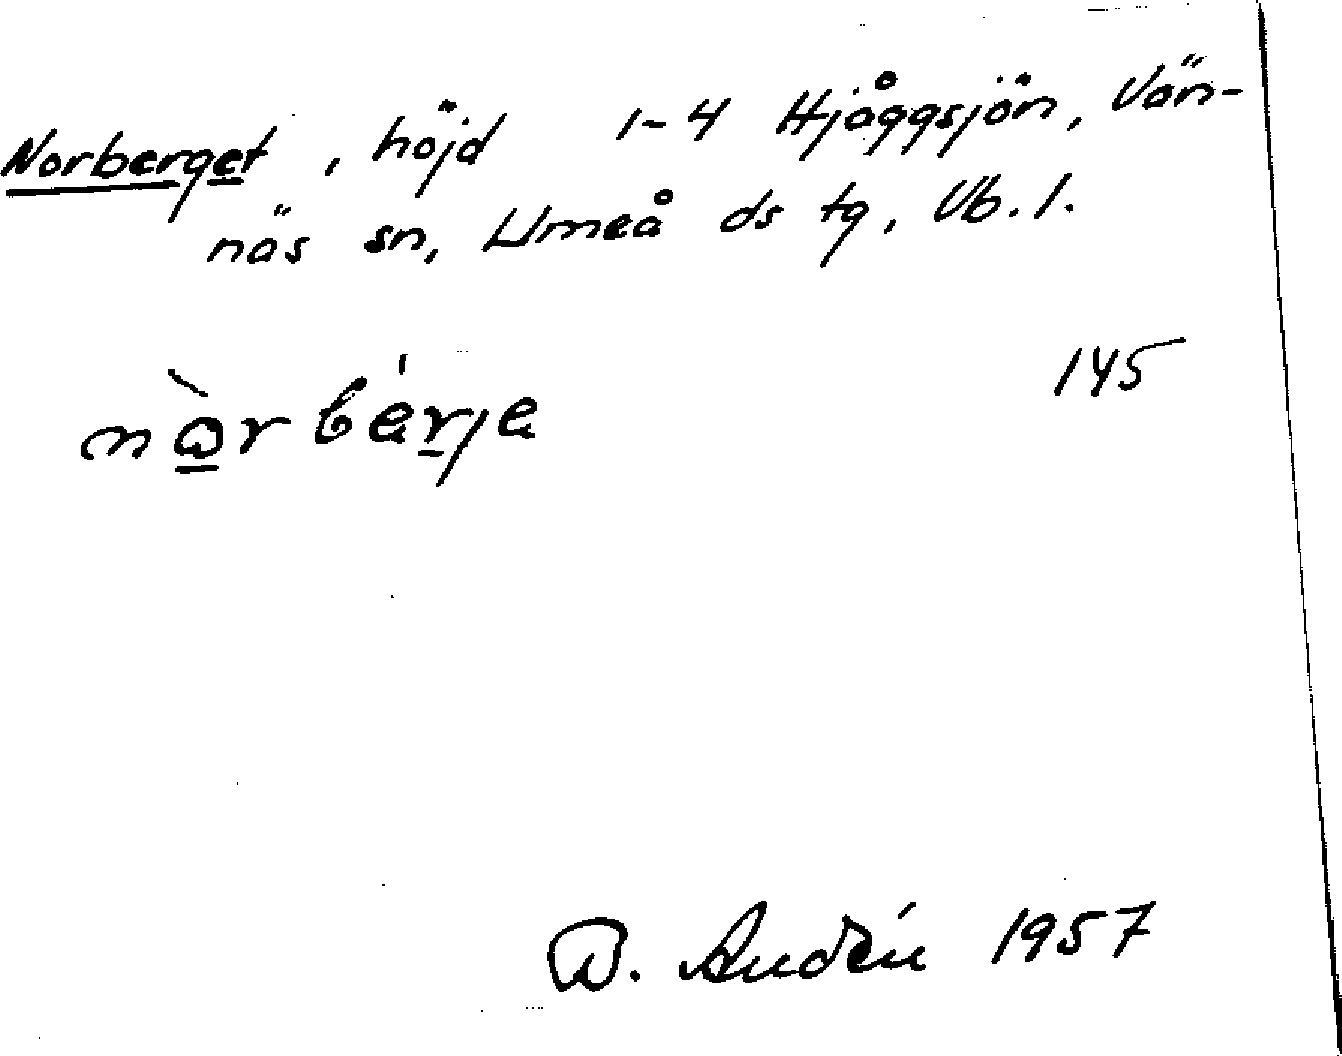 Norberget, höjd 1-4 Hjåggsjön, Vän-
näs sn, Umeå ds tg, Vb. l.
145
D. Andén 1957